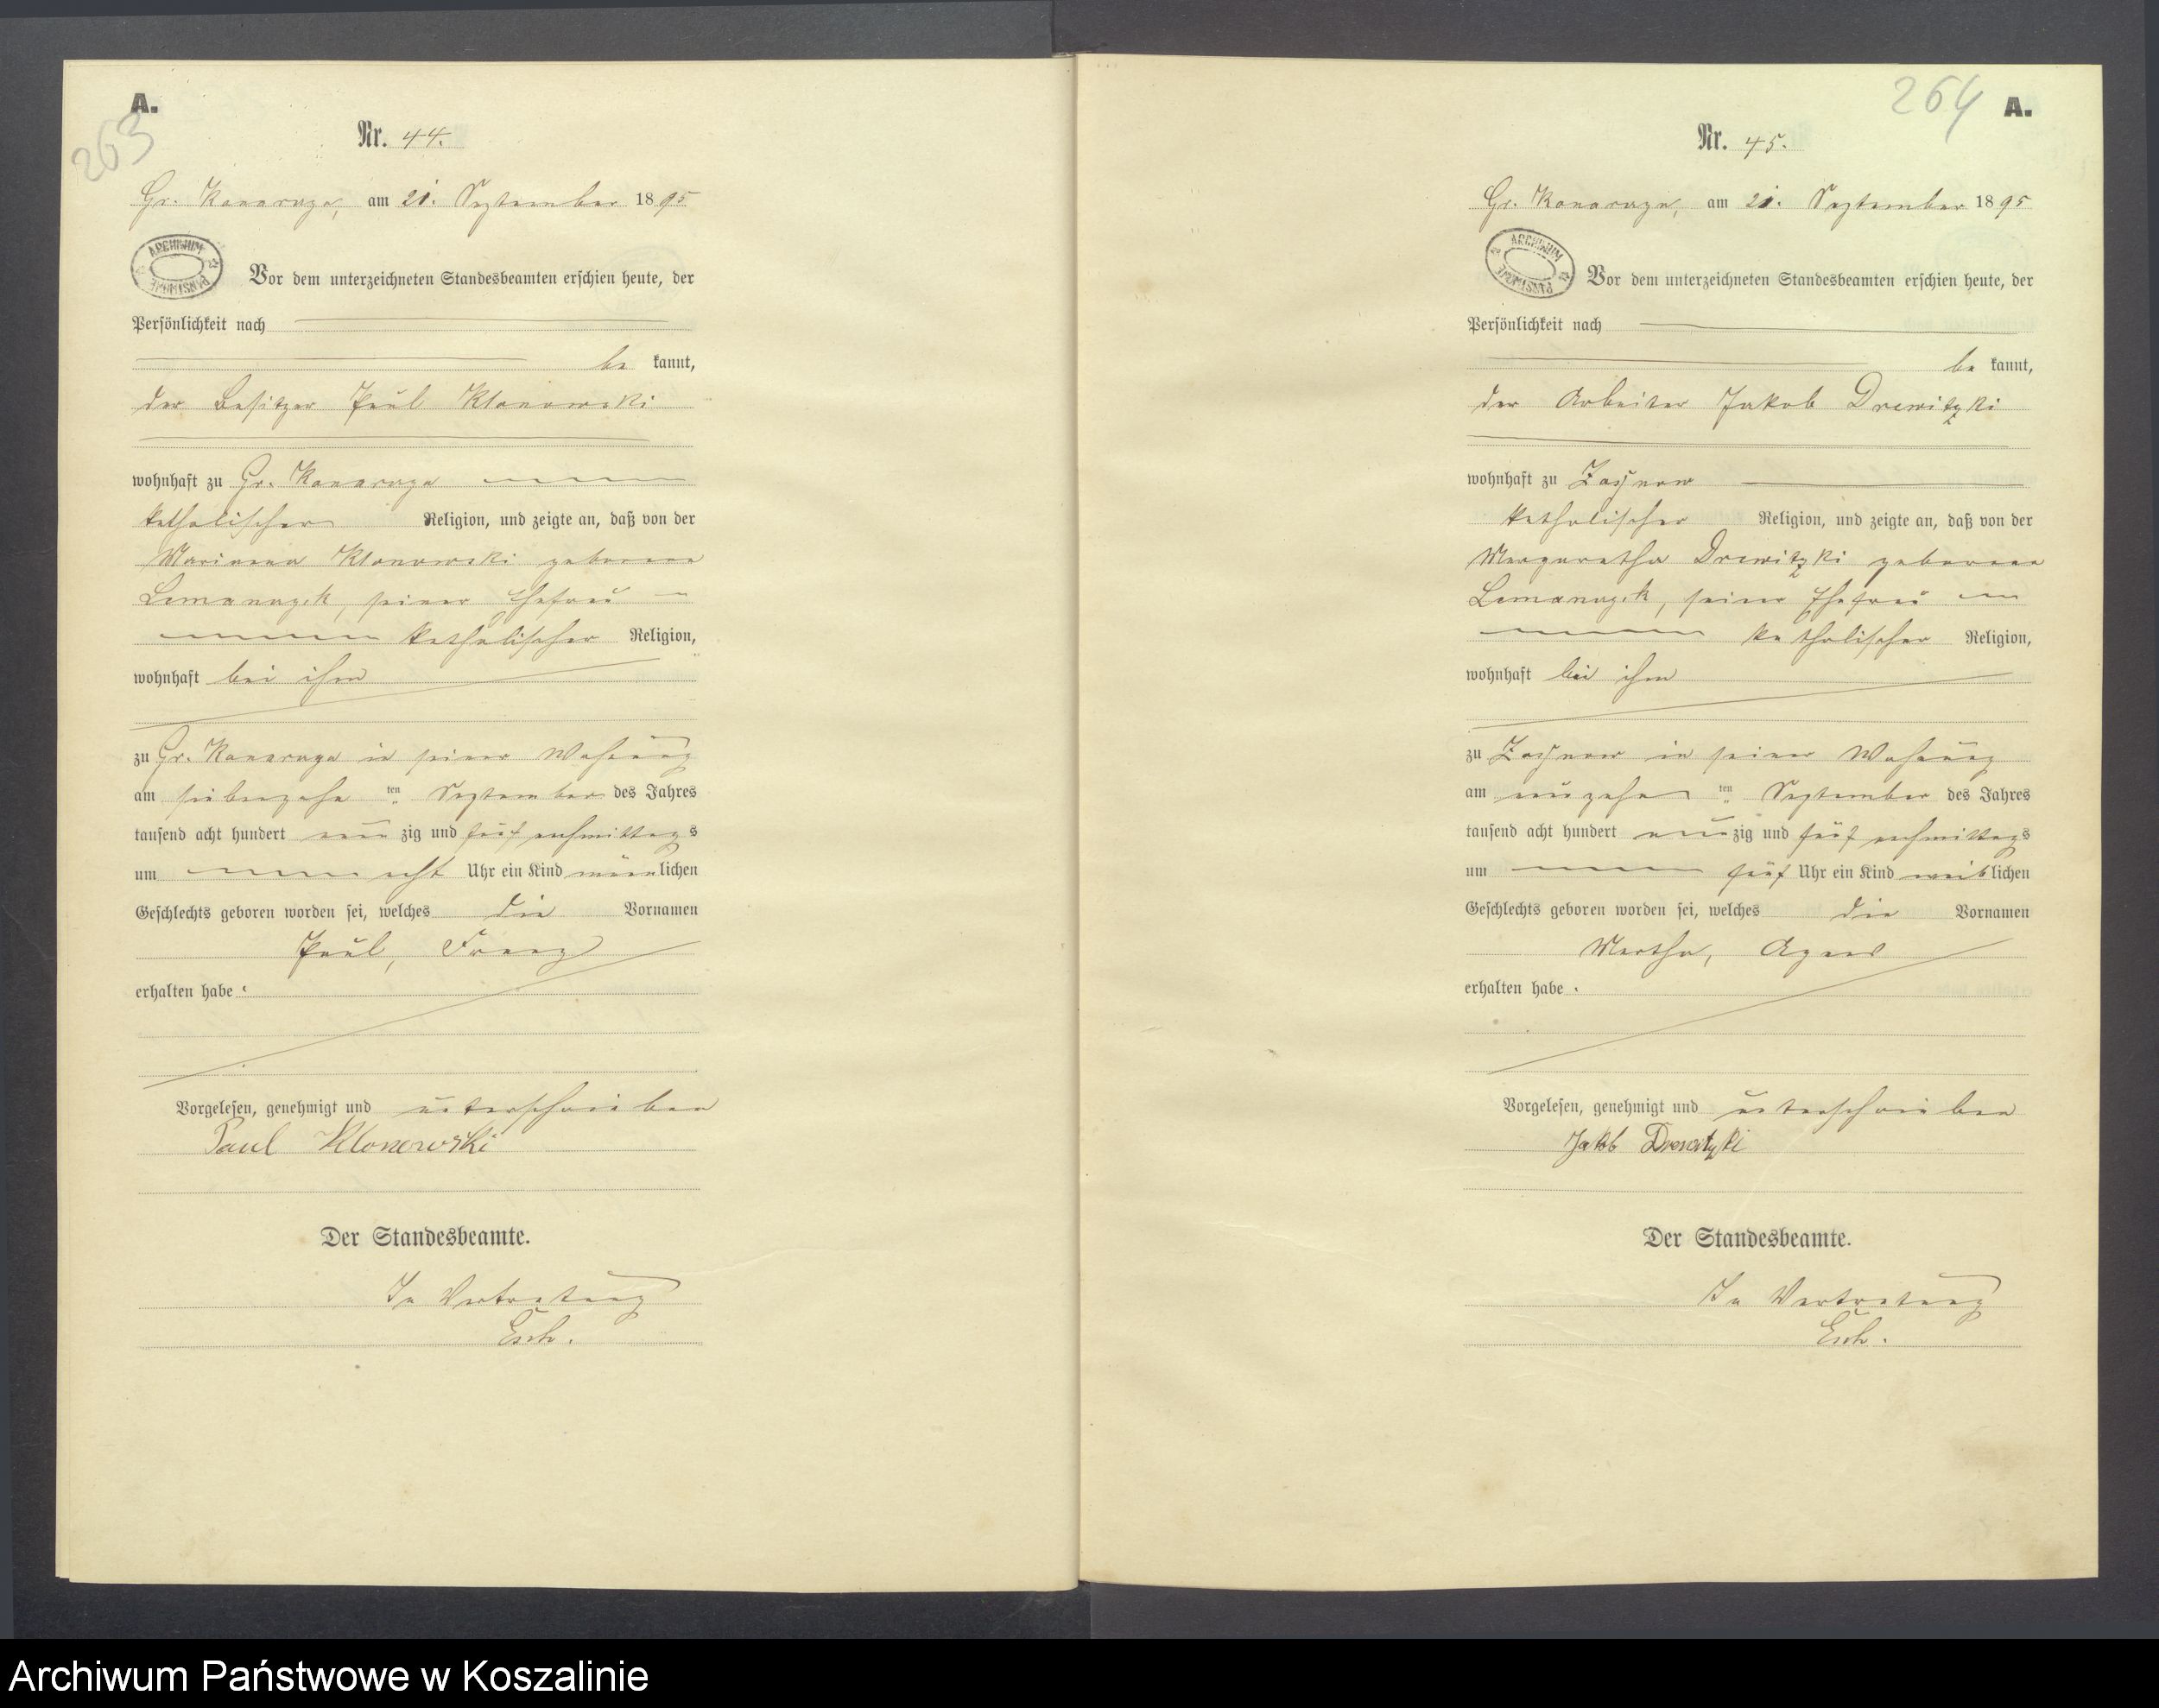 A.
263
Nr. 44.
Gr. Konarczyn, am 21. September 1895
ARCHIWUM
PAŃSTWOWE
Vor dem unterzeichneten Standesbeamten erschien heute, der
Persönlichkeit nach
be kannt,
der Besitzer Paul Klonowski
wohnhaft zu Gr. Konarczyn
katholischer Religion, und zeigte an, daß von der
Marianna Klonowski geborene
seiner Ehefrau
katholischer Religion,
wohnhaft bei ihm
zu Gr. Konarczyn in seiner Wohnung
am siebenzehn ten September des Jahres
tausend acht hundert neun zig und fünf nachmittags
um acht Uhr ein Kind männlichen
Geschlechts geboren worden sei, welches die Vornamen
Paul, Franz
erhalten habe.
Vorgelesen, genehmigt und unterschrieben
Paul Klonowski
Der Standesbeamte.
In Vertretung
264 A.
Nr. 45.
Gr. Konarczyn, am 21. September 1895
ARCHIWUM
PAŃSTWOWE
Vor dem unterzeichneten Standesbeamten erschien heute, der
Persönlichkeit nach
be kannt,
der Arbeiter Jakob Drewitzki
wohnhaft zu
katholischer Religion, und zeigte an, daß von der
Margaretha Drewitzki geborene
seiner Ehefrau
katholischer Religion,
wohnhaft bei ihm
zu in seiner Wohnung
am neunzehn ten September des Jahres
tausend acht hundert neunzig und fünf nachmittags
um fünf Uhr ein Kind weiblichen
Geschlechts geboren worden sei, welches die Vornamen
Martha, Agnes
erhalten habe.
Vorgelesen, genehmigt und unterschrieben
Jakob Drewitzki
Der Standesbeamte.
In Vertretung
Archiwum Państwowe w Koszalinie